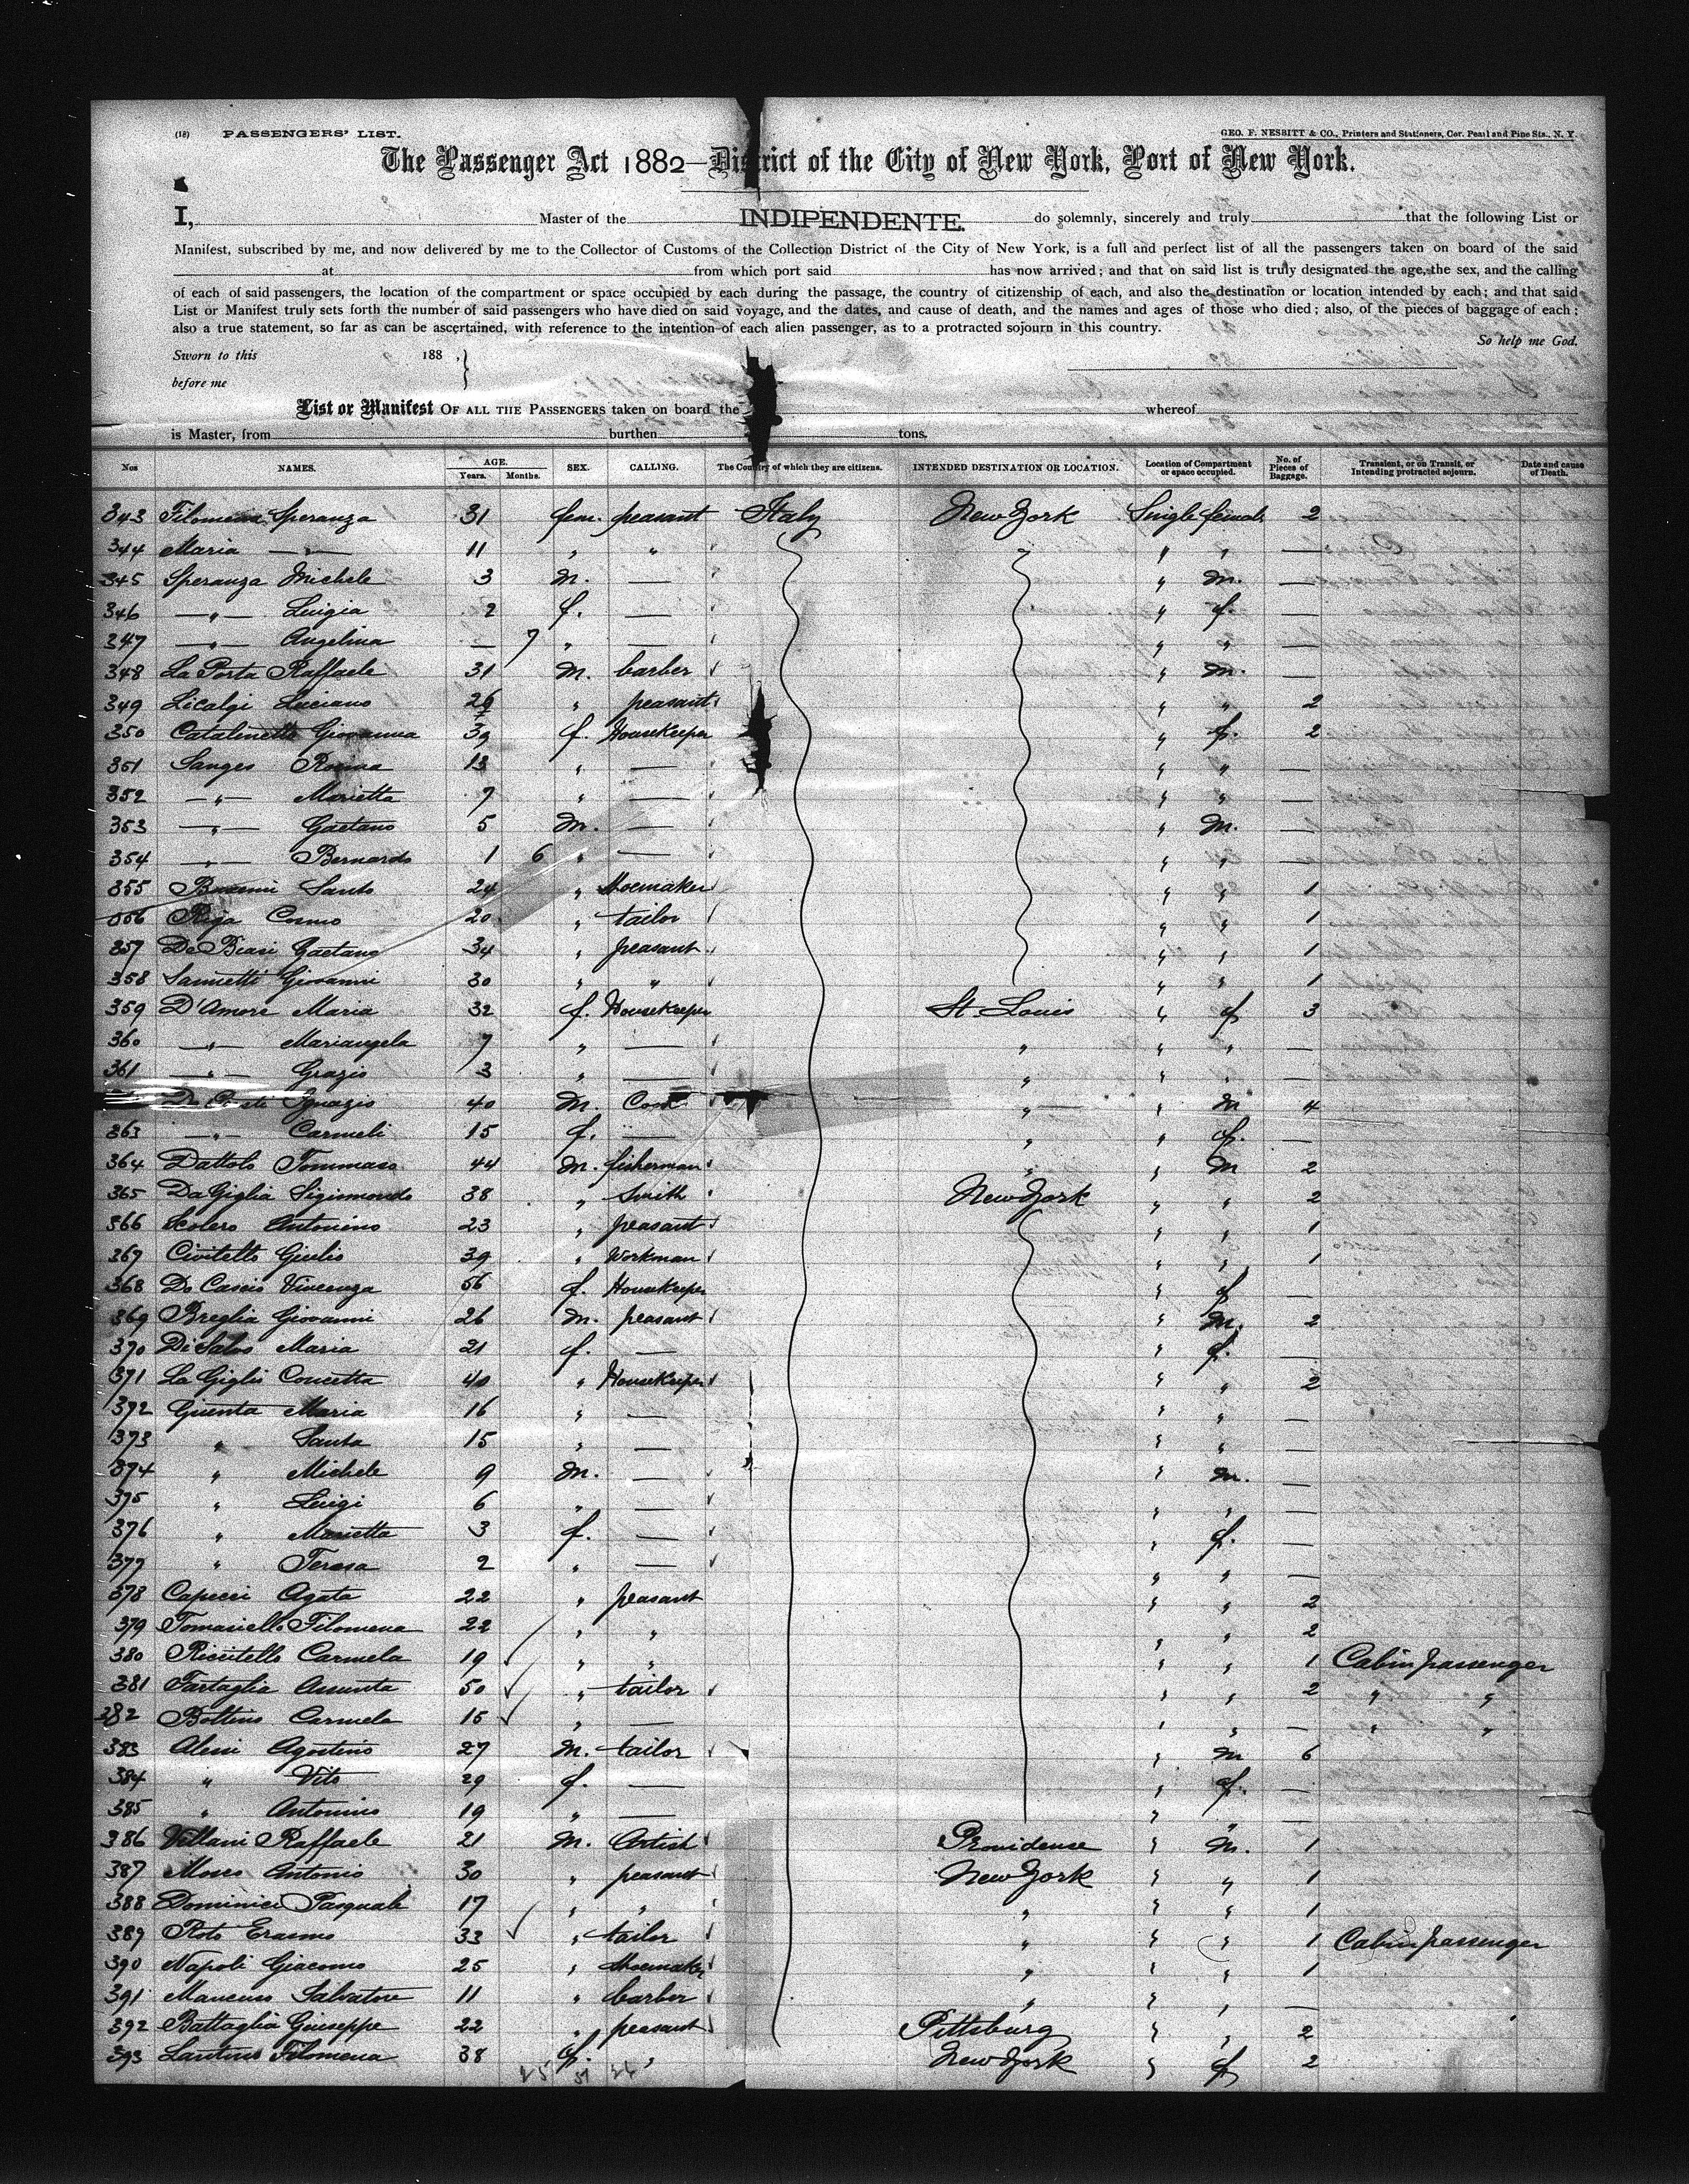 (18) PASSENGERS' LIST. GEO. F. NESBITT & CO., Printers and Stationers, Cor. Pearl and Pine Sts., N. Y.
The Passenger Act 1882—District of the City of New York, Port of New York.
I, Master of the INDIPENDENTE. do solemnly, sincerely and truly that the following List or
Manifest, subscribed by me, and now delivered by me to the Collector of Customs of the Collection District of the City of New York, is a full and perfect list of all the passengers taken on board of the said
at from which port said has now arrived; and that on said list is truly designated the age, the sex, and the calling
of each of said passengers, the location of the compartment or space occupied by each during the passage, the country of citizenship of each, and also the destination or location intended by each; and that said
List or Manifest truly sets forth the number of said passengers who have died on said voyage, and the dates, and cause of death, and the names and ages of those who died; also, of the pieces of baggage of each;
also a true statement, so far as can be ascertained, with reference to the intention of each alien passenger, as to a protracted sojourn in this country.
So help me God.
Sworn to this 188 ,}
before me
List or Manifest OF ALL THE PASSENGERS taken on board the whereof
is Master, from burthen tons.
Nos NAMES. AGE. Years. Months. SEX. CALLING. The Country of which they are citizens. INTENDED DESTINATION OR LOCATION. Location of Compartment or space occupied. No. of Pieces of Baggage. Transient, or on Transit, or Intending protracted sojourn. Date and cause of Death.
343 Filomena Speranza 31 fem. peasant Italy New York Single female 2
344 Maria —"— 11 " " " " —
345 Speranza Michele 3 M. — " M. —
346 —"— Luigia 2 f. — " f. —
347 —"— Angelina — 7 " — " " —
348 La Porta Raffaele 31 M. barber " M. —
349 Licalgi Luciano 26 " peasant " " 2
350 Giovanna 39 f. Housekeeper " f. 2
351 Sanges Rosina 13 " — " " —
352 —"— Marietta 7 " — " " —
353 —"— Gaetano 5 M. — " M. —
354 —"— Bernardo 1 6 " — " " —
355 Santo 24 " Shoemaker " " 1
356 Riga Cosmo 20 " tailor " " 1
357 De Biasi Gaetano 34 " peasant " " 1
358 Giovanni 30 " " " " 1
359 D'Amore Maria 32 f. Housekeeper St. Louis " f 3
360 —"— Mariangela 7 " — " " " —
361 —"— Grazio 3 " — " " " —
Ignazio 40 M. Cook " " M 4
363 —"— Carmeli 15 f. — " " f. —
364 Dattolo Tommaso 44 M. fisherman " " M 2
365 Da Giglia Sigismondo 38 " Smith New York " " 2
366 Scolero Antonino 23 " peasant " " 1
367 Civitello Giulio 39 " Workman " " 1
368 Lo Cascio Vincenza 56 f. Housekeeper " f —
369 Breglia Giovanni 26 M. peasant " M. 2
370 Di Salvo Maria 21 f. — " f. —
371 La Giglio Concetta 40 " Housekeeper " " 2
372 Guenta Maria 16 " — " " —
373 " Santa 15 " — " " —
374 " Michele 9 M. — " M. —
375 " Luigi 6 " — " " —
376 " Marietta 3 f. — " f. —
377 " Teresa 2 " — " " —
378 Capucci Agata 22 " peasant " " 2
379 Tomasiello Filomena 22 " " " " 2
380 Riccitello Carmela 19 " " " " 1 Cabin passenger
381 Tartaglia Assunta 50 " tailor " " 2 " "
382 Bottino Carmela 15 " — " " — " "
383 Alessi Agostino 27 M. tailor " M 6
384 " Vito 29 f. — " f. —
385 " Antonino 19 " — " "
386 Villani Raffaele 21 M. Artist Providense " M. 1
387 Antonio 30 " peasant New York " " 1
388 Dominici Pasquale 17 " " " " " 1
389 Roto Erasmo 33 " tailor " " " 1 Cabin passenger
390 Napoli Giacomo 25 " Shoemaker " " " 1
391 Mancuso Salvatore 11 " barber " " " —
392 Battaglia Giuseppe 22 " peasant Pittsburg " " 2
393 Lantino Filomena 38 f. " New York " f 2